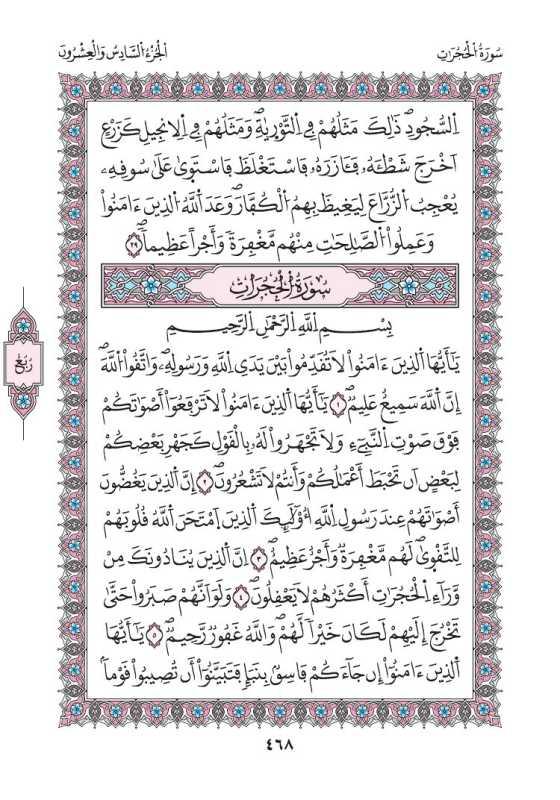 سُورَةُ الْحُجُرَاتِ
الجُزْءُ السَّادِسُ وَالْعِشْرُونَ
اِ۬لسُّجُودِۖ ذَٰلِكَ مَثَلُهُمْ فِے اِ۬لتَّوْر۪يٰةِۖ وَمَثَلُهُمْ فِے اِ۬لِانجِيلِ كَزَرْعٍ
اَخْرَجَ شَطْـَٔهُۥ فَـَٔازَرَهُۥ فَاسْتَغْلَظَ فَاسْتَو۪يٰ عَلَىٰ سُوقِهِۦ
يُعْجِبُ اُ۬لزُّرَّاعَ لِيَغِيظَ بِهِمُ اُ۬لْكُفَّارَۖ وَعَدَ اَ۬للَّهُ اُ۬لذِينَ ءَامَنُواْ
وَعَمِلُواْ اُ۬لصَّٰلِحَٰتِ مِنْهُم مَّغْفِرَةٗ وَأَجْراً عَظِيماٗۖ ٢٩
سُورَةُ الْحُجُرَاتِ
بِسْمِ اِ۬للَّهِ اِ۬لرَّحْمَٰنِ اِ۬لرَّحِيمِ
يَٰٓأَيُّهَا اَ۬لذِينَ ءَامَنُواْ لَا تُقَدِّمُواْ بَيْنَ يَدَيِ اِ۬للَّهِ وَرَسُولِهِۦۖ وَاتَّقُواْ اُ۬للَّهَۖ
إِنَّ اَ۬للَّهَ سَمِيعٌ عَلِيمٞۖ ١ يَٰٓأَيُّهَا اَ۬لذِينَ ءَامَنُواْ لَا تَرْفَعُوٓاْ أَصْوَٰتَكُمْ
فَوْقَ صَوْتِ اِ۬لنَّبِےٓءِ وَلَا تَجْهَرُواْ لَهُۥ بِالْقَوْلِ كَجَهْرِ بَعْضِكُمْ
لِبَعْضٍ اَن تَحْبَطَ أَعْمَٰلُكُمْ وَأَنتُمْ لَا تَشْعُرُونَۖ ٢ إِنَّ اَ۬لذِينَ يَغُضُّونَ
أَصْوَٰتَهُمْ عِندَ رَسُولِ اِ۬للَّهِ أُوْلَٰٓئِكَ اَ۬لذِينَ اَ۪مْتَحَنَ اَ۬للَّهُ قُلُوبَهُمْ
لِلتَّقْو۪يٰۖ لَهُم مَّغْفِرَةٞ وَأَجْرٌ عَظِيمٌۖ ٣ اِنَّ اَ۬لذِينَ يُنَادُونَكَ مِنْ
وَّرَآءِ اِ۬لْحُجُرَٰتِ أَكْثَرُهُمْ لَا يَعْقِلُونَۖ ٤ وَلَوَ اَنَّهُمْ صَبَرُواْ حَتَّىٰ
تَخْرُجَ إِلَيْهِمْ لَكَانَ خَيْراٗ لَّهُمْۖ وَاللَّهُ غَفُورٞ رَّحِيمٞۖ ٥ يَٰٓأَيُّهَا
اَ۬لذِينَ ءَامَنُوٓاْ إِن جَآءَكُمْ فَاسِقُۢ بِنَبَإٖ فَتَبَيَّنُوٓاْ أَن تُصِيبُواْ قَوْماَۢ
رُبُعْ
٤٦٨